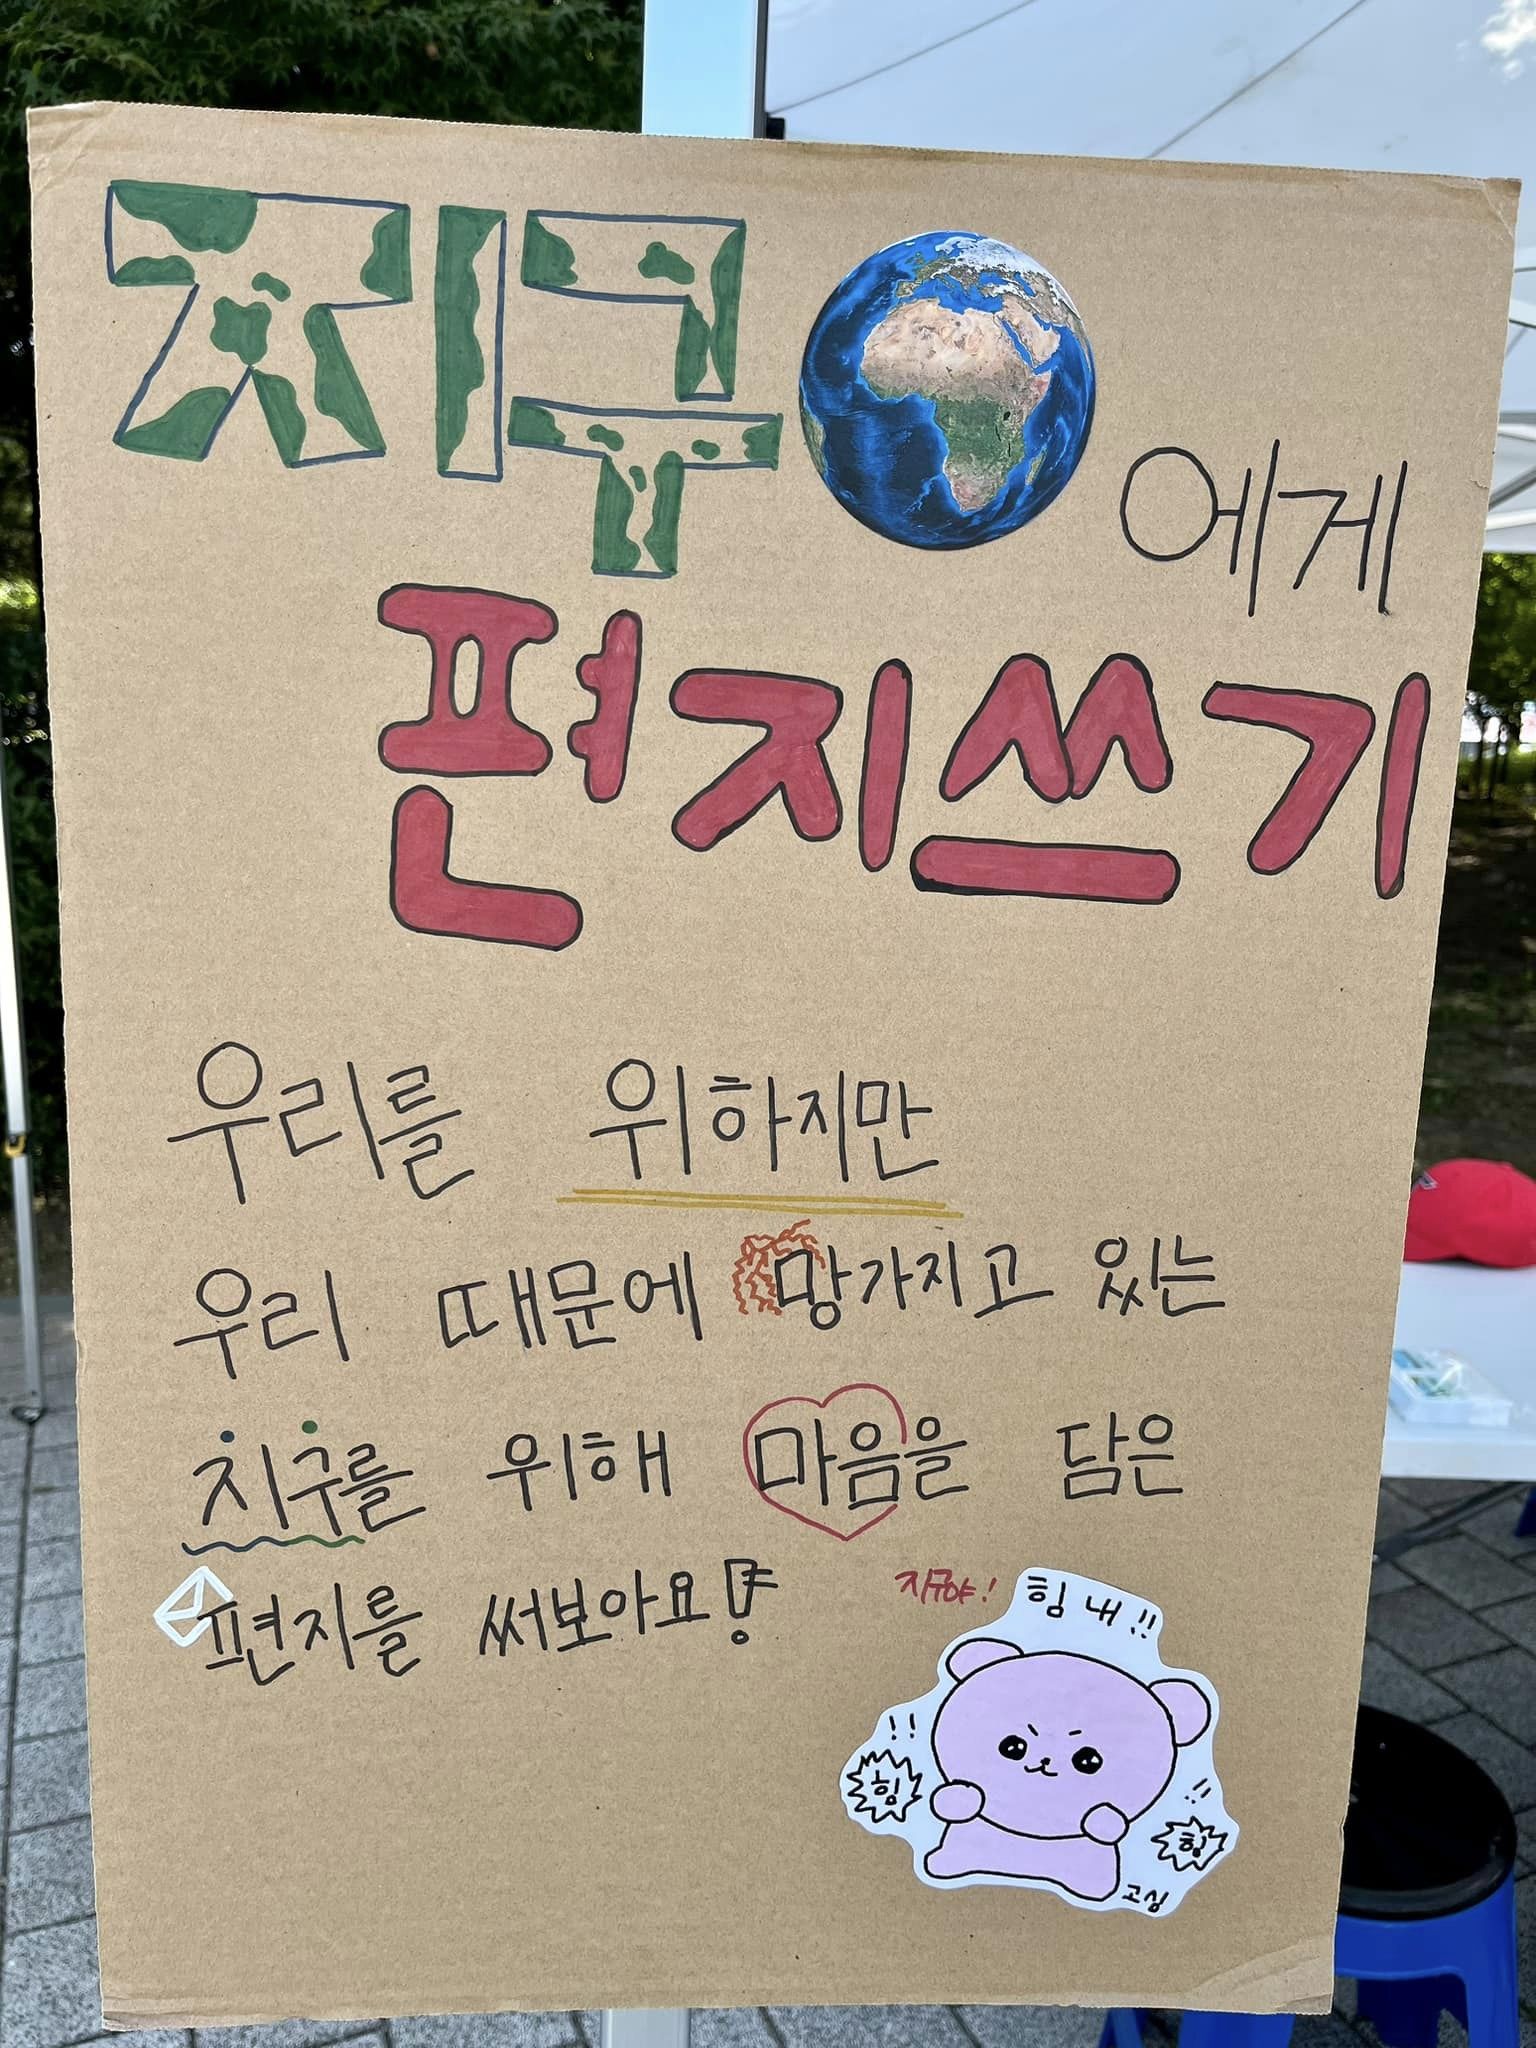 지구에게
편지쓰기
우리를 위하지만
우리 때문에 망가지고 있는
지구를 위해 마음을 담은
편지를 써보아요!
지구야! 힘내!!
!!
힘
!!
힘
고심